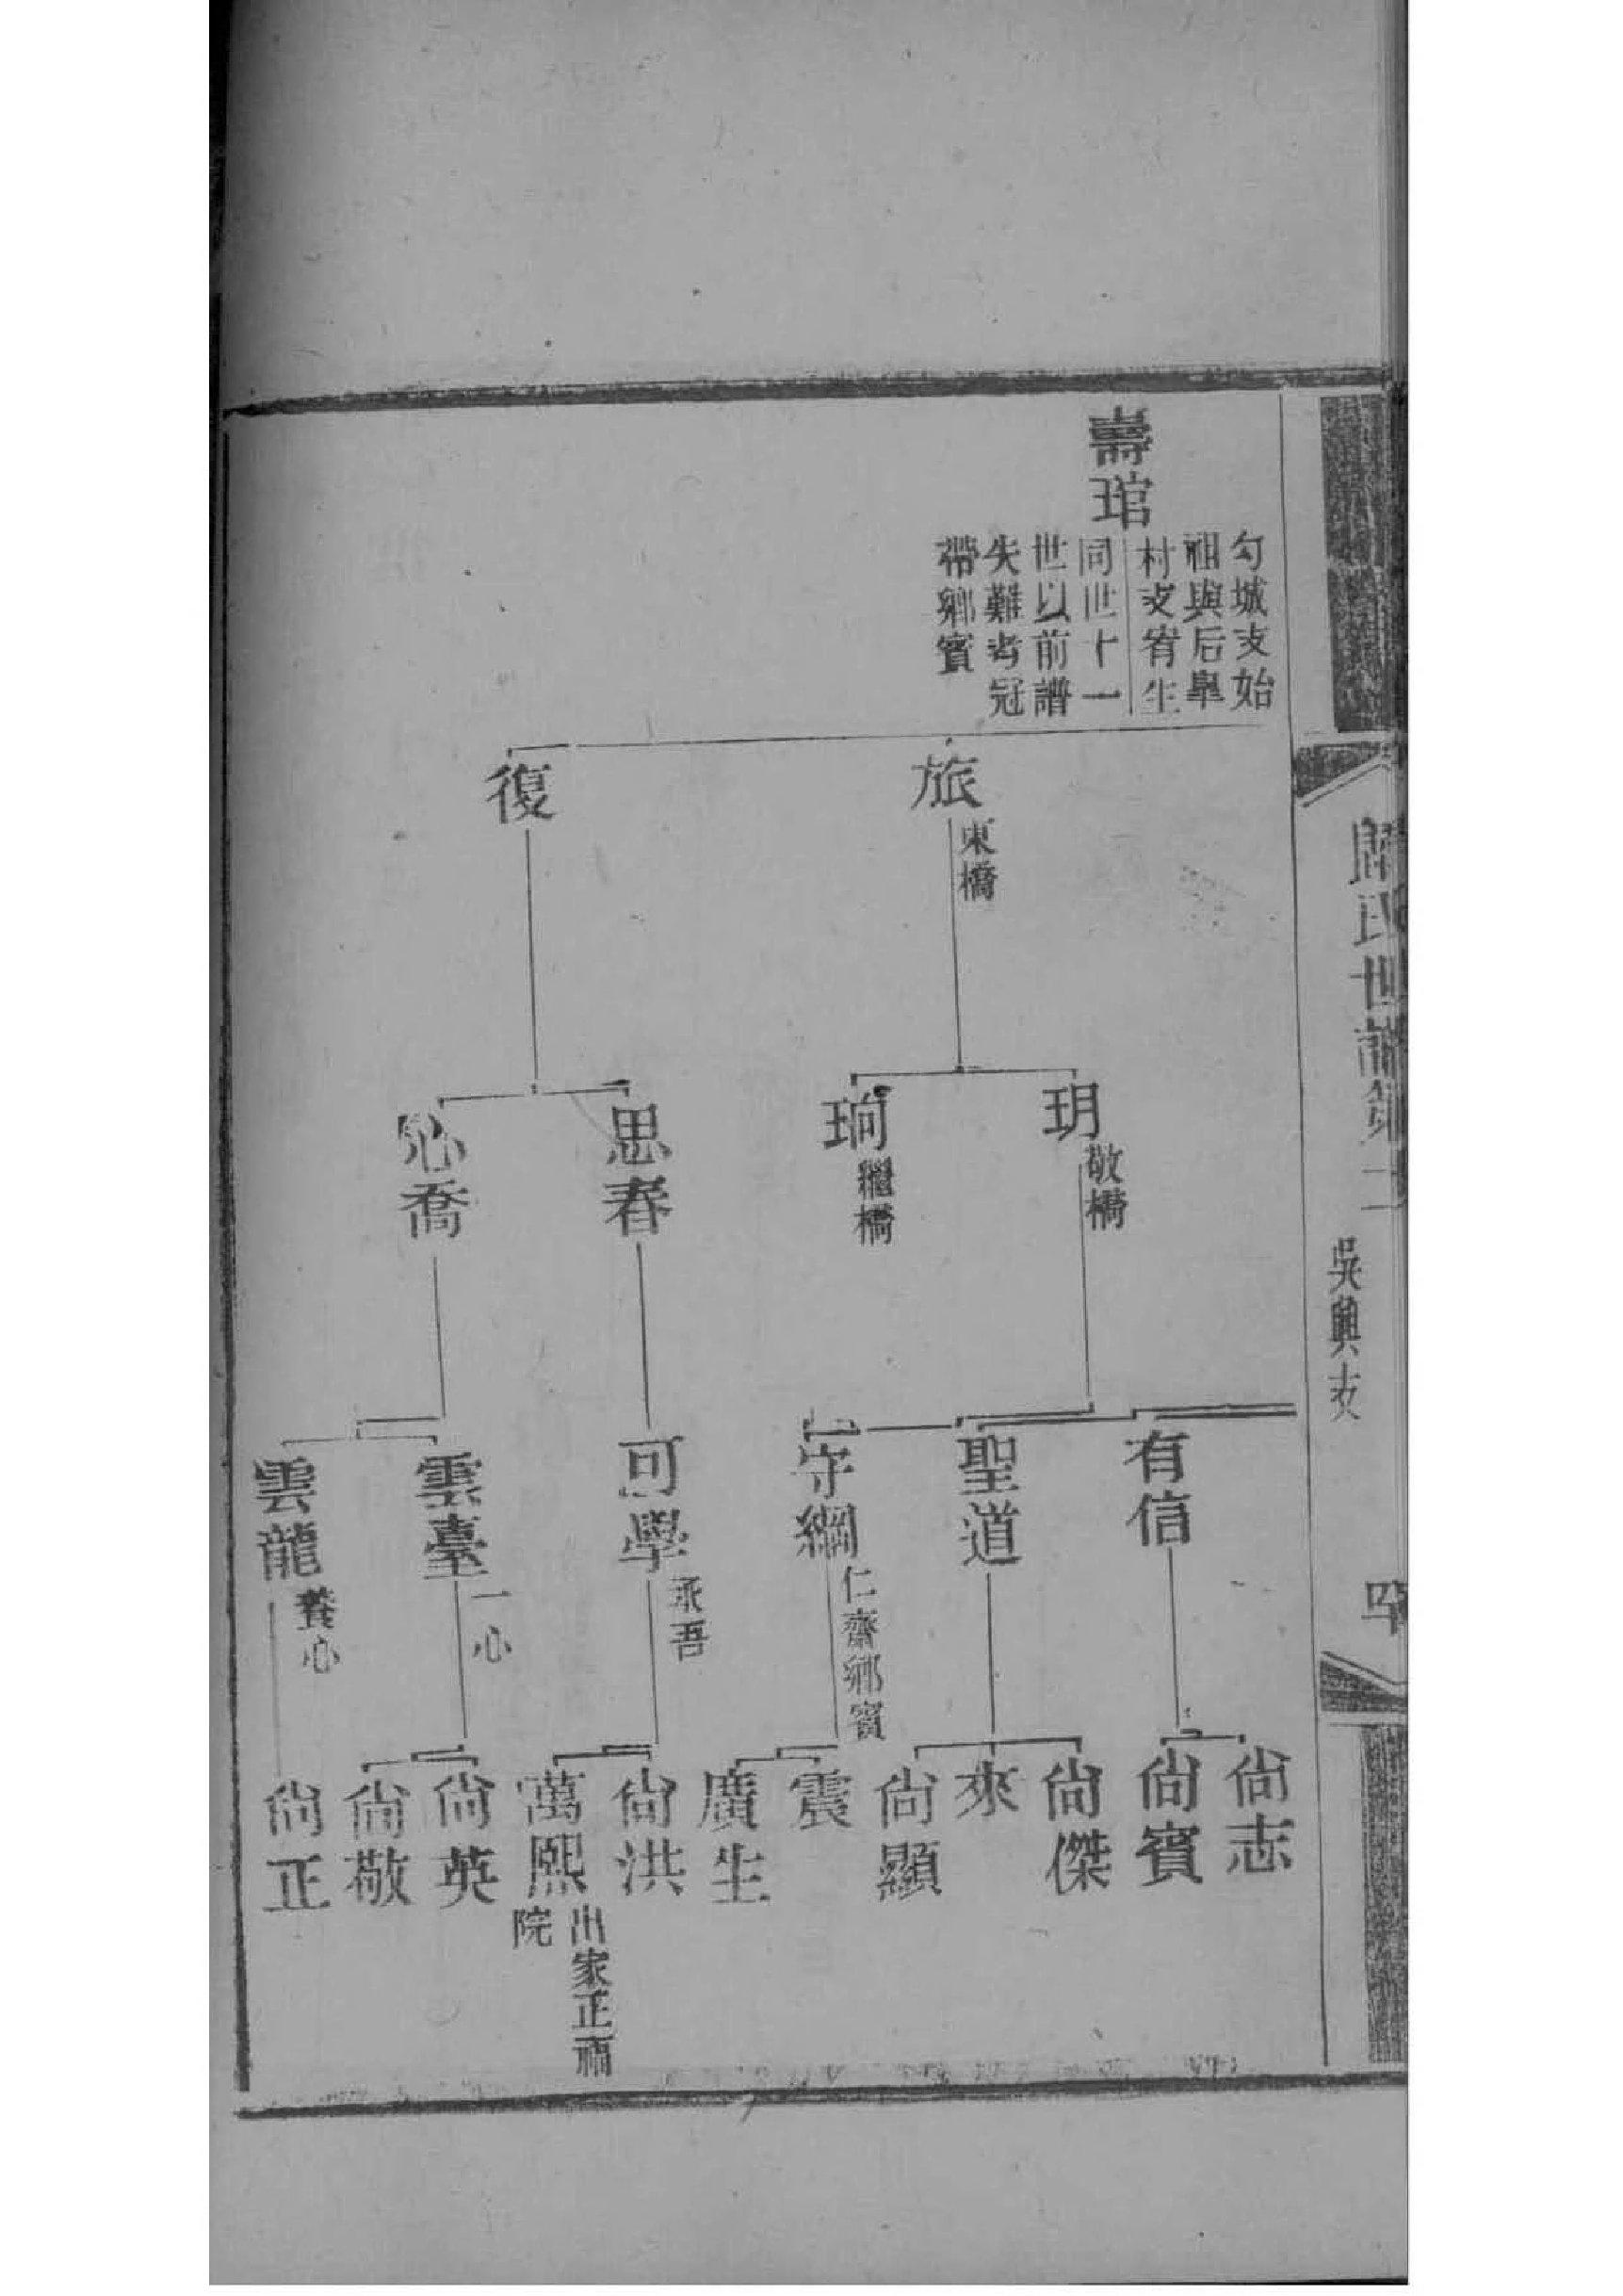 壽琯
勾城支始
祖與后阜
村支宥生
同世十一
世以前譜
失難考冠
帶鄉賓
旅 東橋
復
玥 敬橋
珦 繼橋
思春
心喬
有信
聖道
守綱 仁齋鄉賓
可學 承吾
雲臺 一心
雲龍 養心
尙志
尙賓
尙傑
來
尙顯
震
廣生
尙洪
萬熙 出家正福
院
尙英
尙敬
尙正
氏世譜 二
吳興支